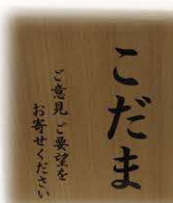 こだま
ご意見ご要望を
お寄せください